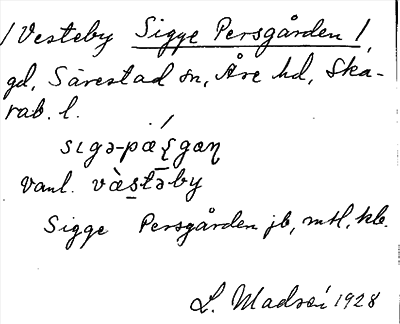 / Vesteby Sigge Persgården /,
gd, Särestad sn, Åse hd, Ska-
rab. l.
sιgə-pæ̲ʃgæɳ
vanl. væ̀s̲tə̲by
Sigge Persgården jb, mtl, kb.
L. 1928